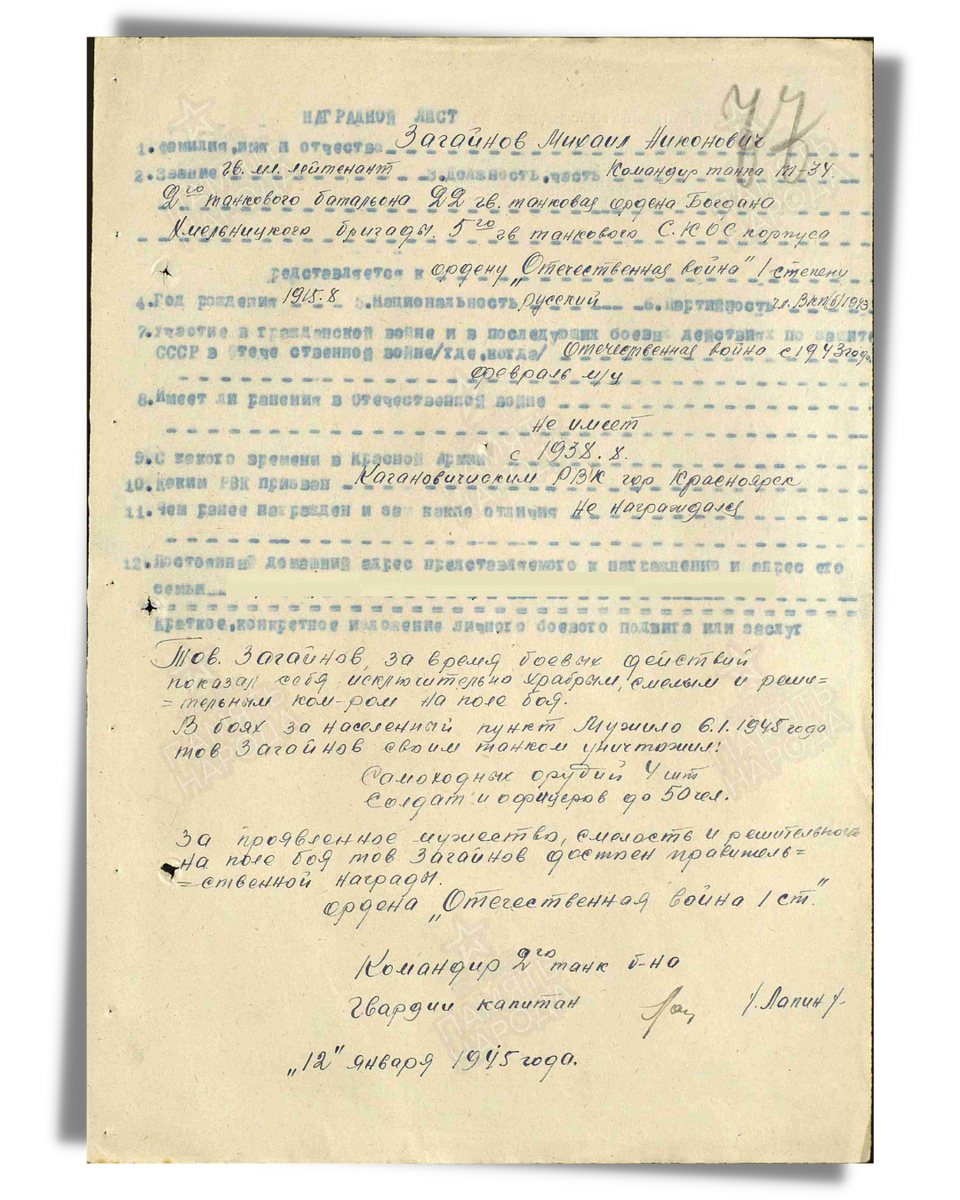 77
НАГРАДНОЙ ЛИСТ
1. Фамилия, имя и отчество Загайнов Михаил Никонович
2. Звание гв. мл. лейтенант 3. Должность, часть Командир танка Т-34
2го танкового батальона 22 гв. танковая ордена Богдана
Хмельницкого бригады. 5го гв танкового С.К.О.С корпуса
редставляется к ордену „Отечественная война" 1 степени
4. Год рождения 1915.г 5. Национальность русский 6. Партийность чл. ВКП(б) 1943
7. Участие в гражданской войне и в последующих боевых действиях по защите
СССР в Отечественной войне/где, когда/ Отечественная война с 1943 года
февраль м/ц
8. Имеет ли ранения в Отечественной войне
Не имеет
9. С какого времени в Красной Армии с 1938. г.
10. Каким РВК призван Кагановичиским РВК гор Красноярск
11. Чем ранее награжден и за какие отличия Не награждался
12. Постоянный домашний адрес представляемого к награждению и адрес его
семьи
Краткое, конкретное изложение личного боевого подвига или заслуг
Тов. Загайнов, за время боевых действий
показал себя исключительно храбрым, смелым и реши=
=тельным ком-ром на поле боя.
В боях за населенный пункт Мужило 6.1.1945 года
тов Загайнов своим танком уничтожил:
Самоходных орудий 4 шт
Солдат и офицеров до 50 чел.
За проявленное мужество, смелость и решительность
на поле боя тов Загайнов достоен правитель=
=ственной награды.
ордена „Отечественная война 1 ст."
Командир 2го танк б-на
гвардии капитан /. Лапин /.
„12" января 1945 года.
ПАМЯТЬ НАРОДА